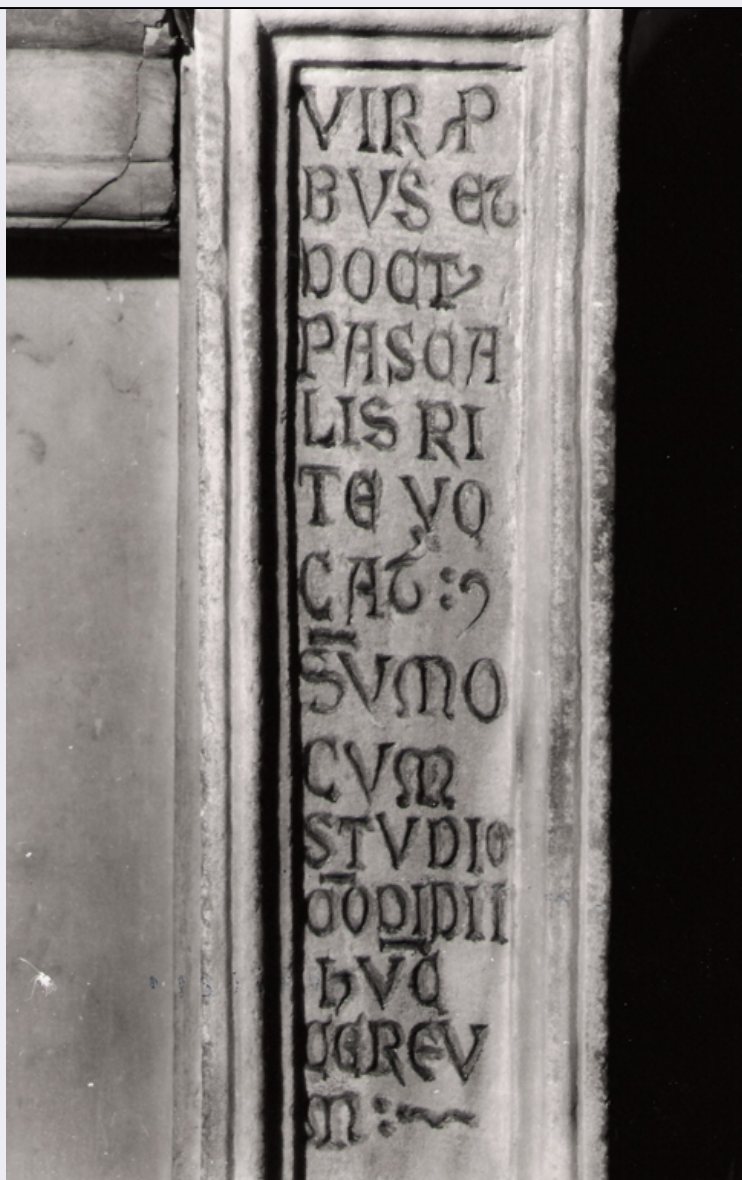 VIR P
BVS ET
DOCT
PASCA
LIS RI
TE VO
CAT :
SVMO
CVM
STVDIO
CODIDII
hVC
CEREV
M :~